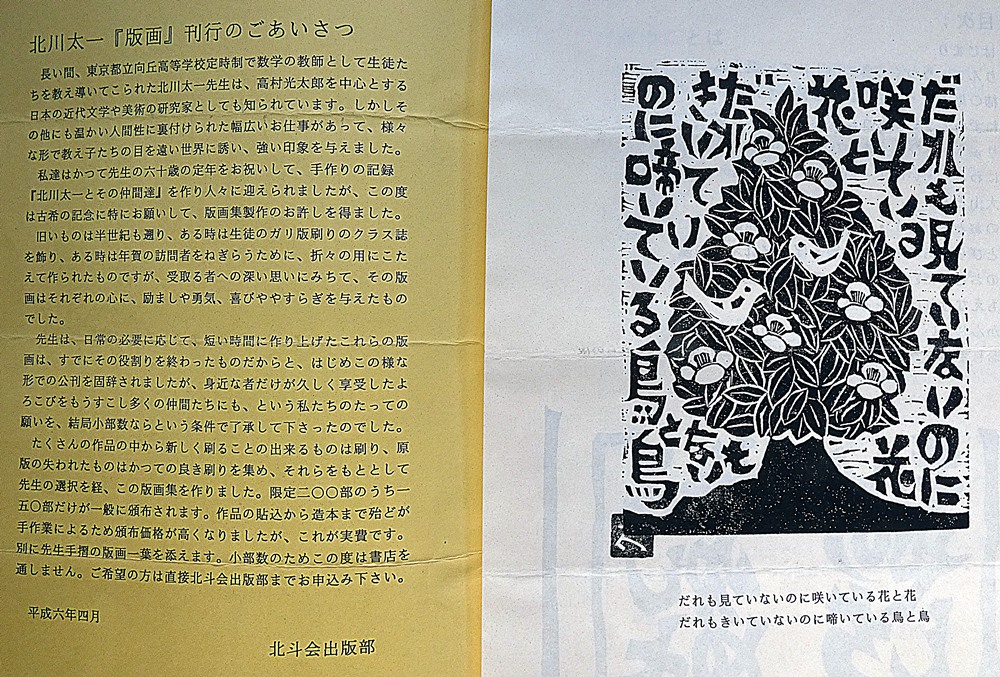 北川太一『版画』刊行のごあいさつ
長い間、東京都立向丘高等学校定時制で数学の教師として生徒た
ちを教え導いてこられた北川太一先生は、高村光太郎を中心とする
日本の近代文学や美術の研究家としても知られています。しかしそ
の他にも温かい人間性に裏付けられた幅広いお仕事があって、様々
な形で教え子たちの目を遠い世界に誘い、強い印象を与えました。
私達はかつて先生の六十歳の定年をお祝いして、手作りの記録
『北川太一とその仲間達』を作り人々に迎えられましたが、この度
は古希の記念に特にお願いして、版画集製作のお許しを得ました。
旧いものは半世紀も遡り、ある時は生徒のガリ版刷りのクラス誌
を飾り、ある時は年賀の訪問者をねぎらうために、折々の用にこた
えて作られたものですが、受取る者への深い思いにみちて、その版
画はそれぞれの心に、励ましや勇気、喜びややすらぎを与えたもの
でした。
先生は、日常の必要に応じて、短い時間に作り上げたこれらの版
画は、すでにその役割りを終わったものだからと、はじめこの様な
形での公刊を固辞されましたが、身近な者だけが久しく享受したよ
ろこびをもうすこし多くの仲間たちにも、という私たちのたっての
願いを、結局小部数ならという条件で了承して下さったのでした。
たくさんの作品の中から新しく刷ることの出来るものは刷り、原
版の失われたものはかつての良き刷りを集め、それらをもととして
先生の選択を経、この版画集を作りました。限定二〇〇部のうち一
五〇部だけが一般に頒布されます。作品の貼込から造本まで殆どが
手作業によるため頒布価格が高くなりましたが、これが実費です。
別に先生手摺の版画一葉を添えます。小部数のためこの度は書店を
通しません。ご希望の方は直接北斗会出版部までお申込み下さい。
平成六年四月
北斗会出版部
だれも見ていないのに
咲いている花と花
だれもきいていない
のに啼いている鳥と鳥
だれも見ていないのに咲いている花と花
だれもきいていないのに啼いている鳥と鳥